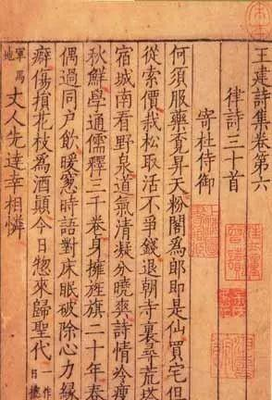 王建詩集卷第六
律詩三十首
寄杜侍御
何須服藥覓昇天粉閣為郎即是仙買宅但
從索價栽松取活不爭錢退朝寺裏尋荒塔
宿城南看野泉道氣清凝分曉爽詩情冷瘦
秋鮮學通儒釋三千卷身擁旌旗二十年春
偶過同户飲暖窻時語對床眠破除心力緣
癖傷損花枝為酒顛今日惣來歸聖代
丈人先達幸相憐